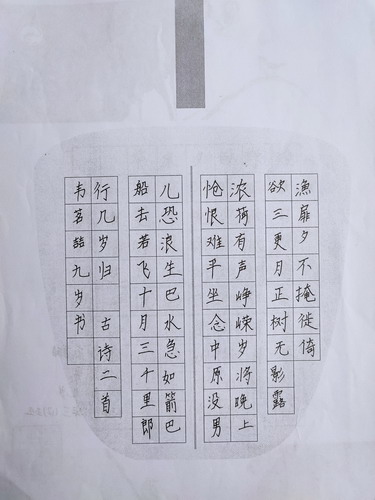 渔扉夕不掩徙倚
欲三更月正树无影露
浓梅有声峥嵘岁将晚上
怆恨难平坐念中原没男
儿恐浪生巴水急如箭巴
船去若飞十月三千里郎
行几岁归 古诗二首
韦茗喆九岁书